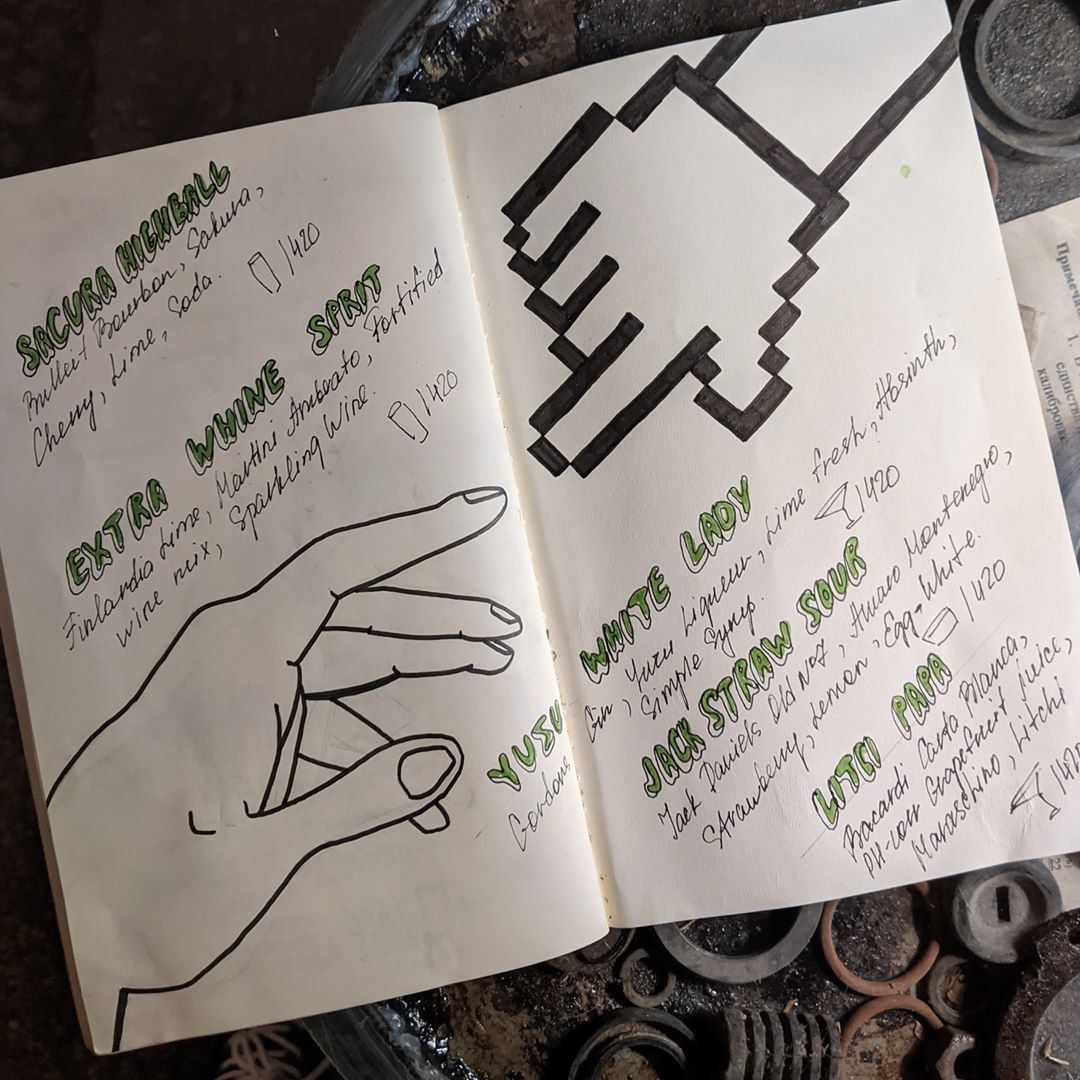 SACURA HIGHBALL
Bulleit Bourbon, Sakura,
Cherry, Lime, Soda. /420
EXTRA WHINE SPRIT
Finlandia Lime, Martini Ambrato, Fortified
wine mix, Sparkling Wine. /420
YUSU
Gordons
WHITE LADY
Gin, Yuzu Liqueur, Lime fresh, Absinth,
Simple Syrup. /420
JACK STRAW SOUR
Jack Daniels Old No7, Amaro Montenegro,
Strawberry, Lemon, Egg-White. /420
LITCI PAPA
Bacardi Carta Blanca,
PH-corr Grapefruit juice,
Maraschino, Litchi /420
Примечан
1. В
единстве
калибровк